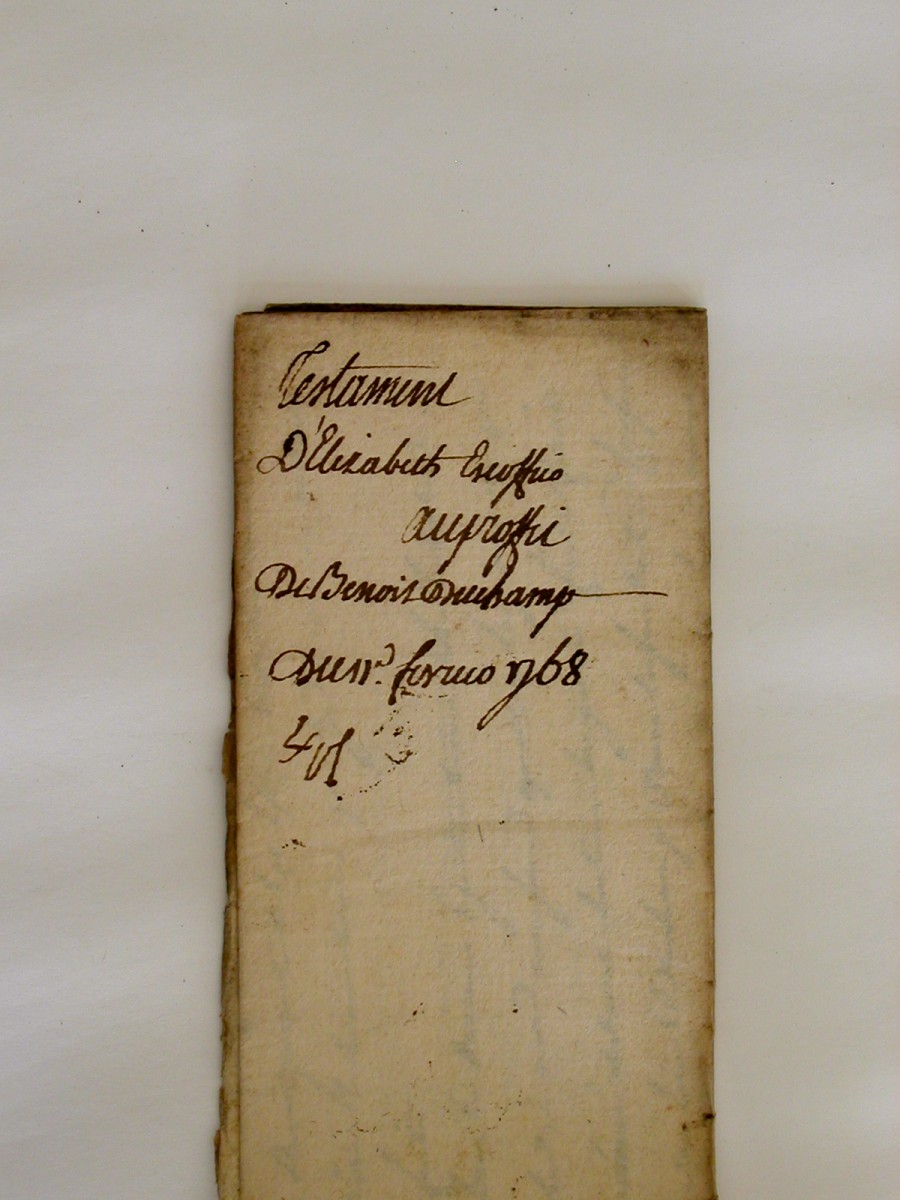 Testament
D'Elizabeth Escoffié
au proffit
De Benoit Duchamp
Du 11e. fevrier 1768